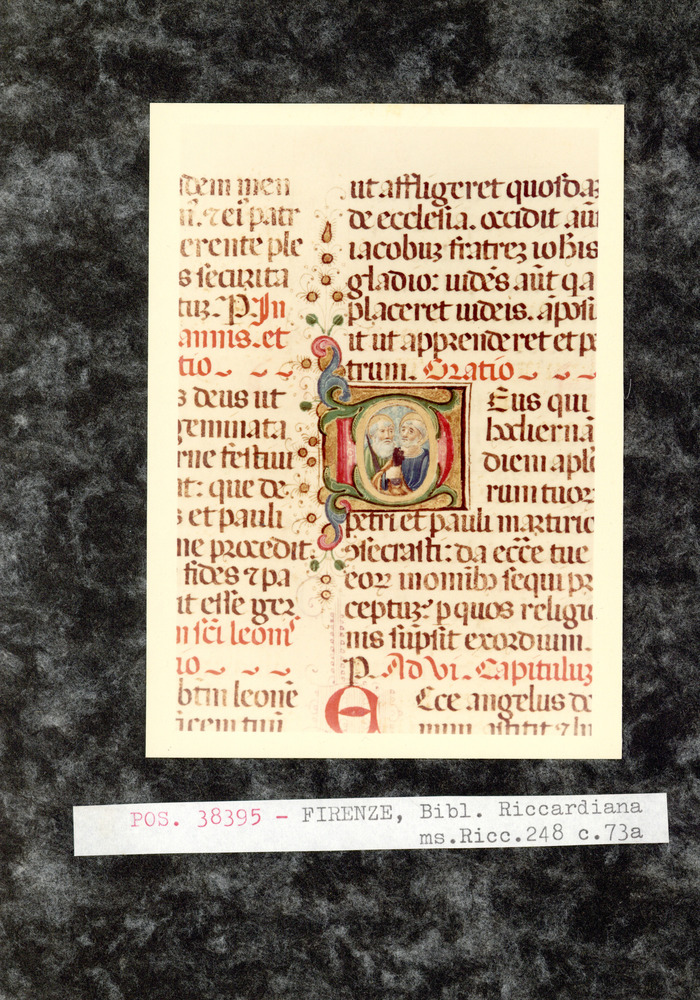 idem meri
ñ. ⁊ ei patr
erente ple
s securita
tuz. P. In
annis. et
tio
s deus ut
geminata
rne festiui
it: que de
s et pauli
ne procedit.
fides ⁊ pa
it esse ger
n sci leonis
io
btm leone
icem tuū
ut affligeret quosdaz
de ecclesia. occidit aūt
iacobuz fratrez iohis
gladio: uidēs aūt qa
placeret iudeis. aposu
it ut apprenderet et pe
trum. Oratio
Eus qui
hodiernā
diem aplo
rum tuoz
petri et pauli martirio
ɔsecrasti: da ecc̄e tue
eoz
sequi pr
ceptuz: p quos religio
nis sūpsit exordium.
P. Ad vi. Capituluz
Ecce angelus do
mini astitit ⁊ lu
POS. 38395 - FIRENZE, Bibl. Riccardiana
ms.Ricc.248 c.73a